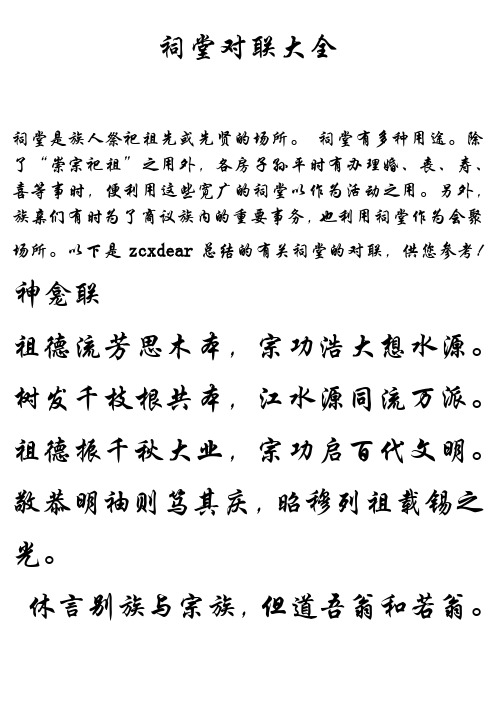 祠堂对联大全
祠堂是族人祭祀祖先或先贤的场所。 祠堂有多种用途。除
了“崇宗祀祖”之用外，各房子孙平时有办理婚、丧、寿、
喜等事时，便利用这些宽广的祠堂以作为活动之用。另外，
族亲们有时为了商议族内的重要事务，也利用祠堂作为会聚
场所。以下是 zcxdear 总结的有关祠堂的对联，供您参考！
神龛联
祖德流芳思木本，宗功浩大想水源。
树发千枝根共本，江水源同流万派。
祖德振千秋大业，宗功启百代文明。
敬恭明神则笃其庆，昭穆列祖载锡之
光。
休言别族与宗族，但道吾翁和若翁。